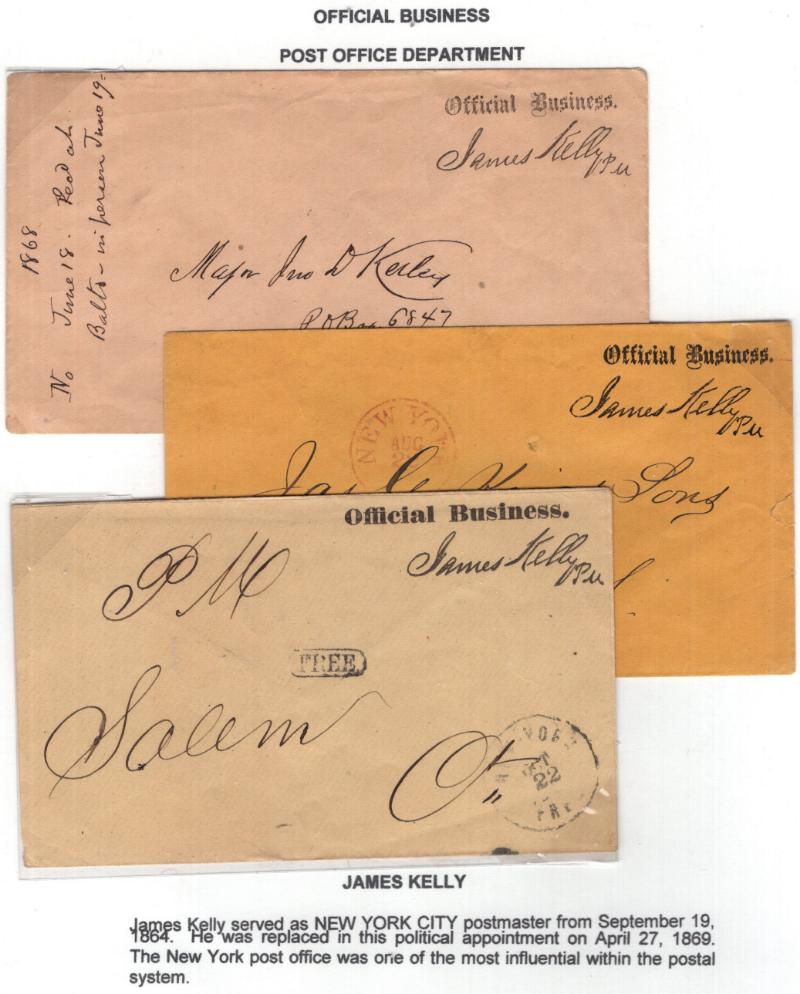 OFFICIAL BUSINESS
POST OFFICE DEPARTMENT
1868
No June 18. Recd at
Balto - in person June 19 -
Official Business.
James Kelly PM
Major Jno D Kerley
P O Box 6847
Official Business.
James Kelly PM
NEW YO
AUG
Jas Sons
Official Business.
James Kelly PM
P M
FREE
Salem
O
YORK
OCT
22
FRE
JAMES KELLY
James Kelly served as NEW YORK CITY postmaster from September 19,
1864. He was replaced in this political appointment on April 27, 1869.
The New York post office was one of the most influential within the postal
system.